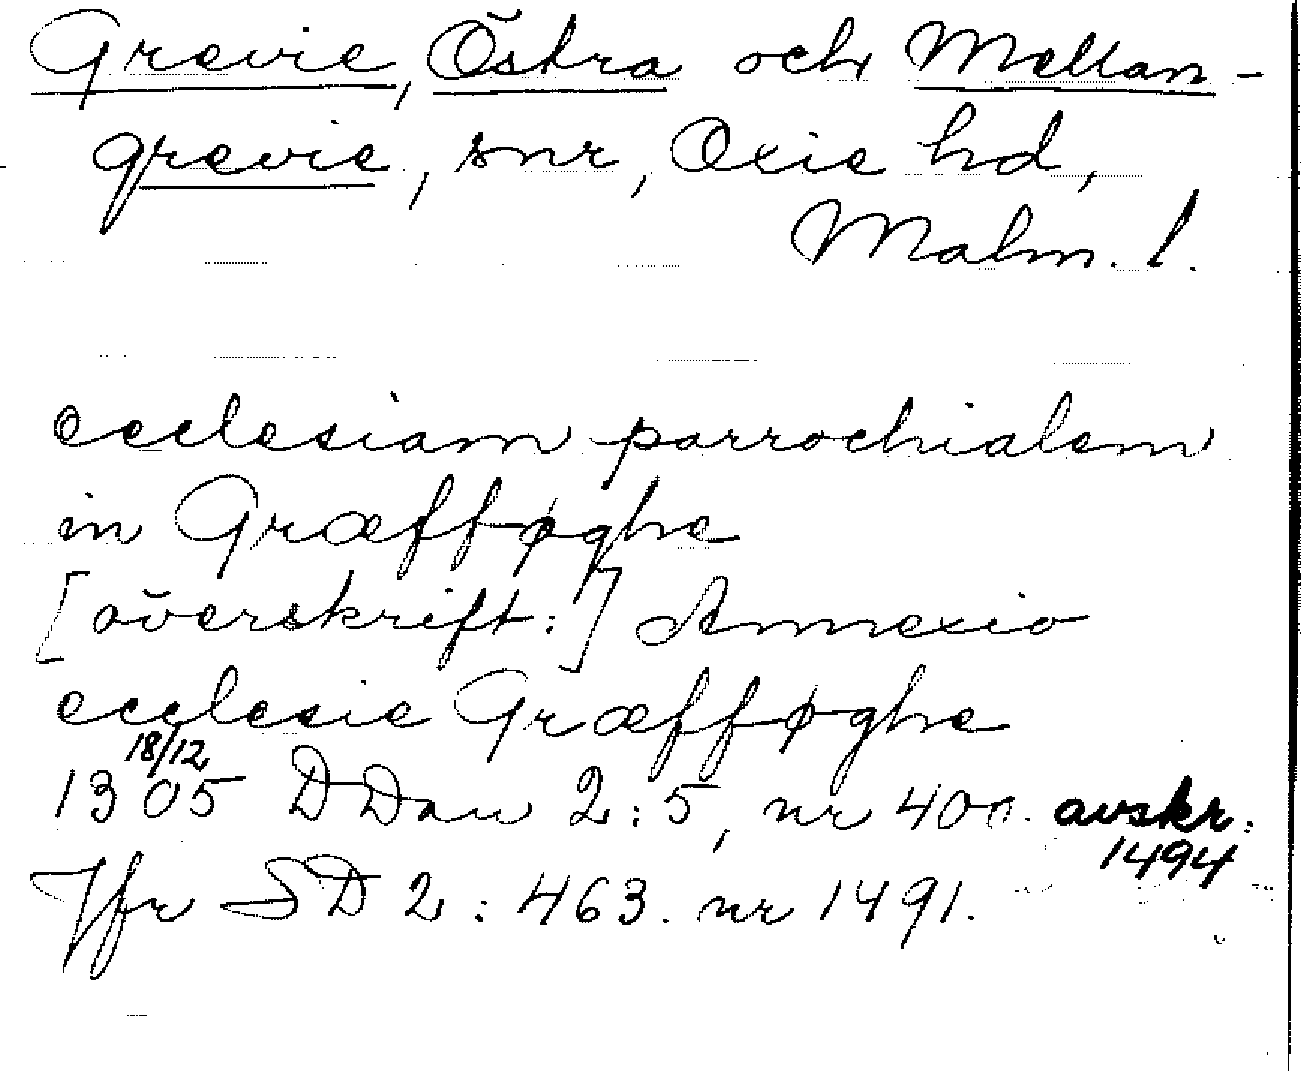 Grevie, Östra och Mellan-
grevie, snr, Oxie hd,
Malm. l.
ecclesiam parrochialem
in Græffføghe
[överskrift:] Annexio
ecclesie Græffføghe
18/12
1305 DDan 2:5, nr 400. avskr.
1494
Jfr SD 2: 463. nr 1491.